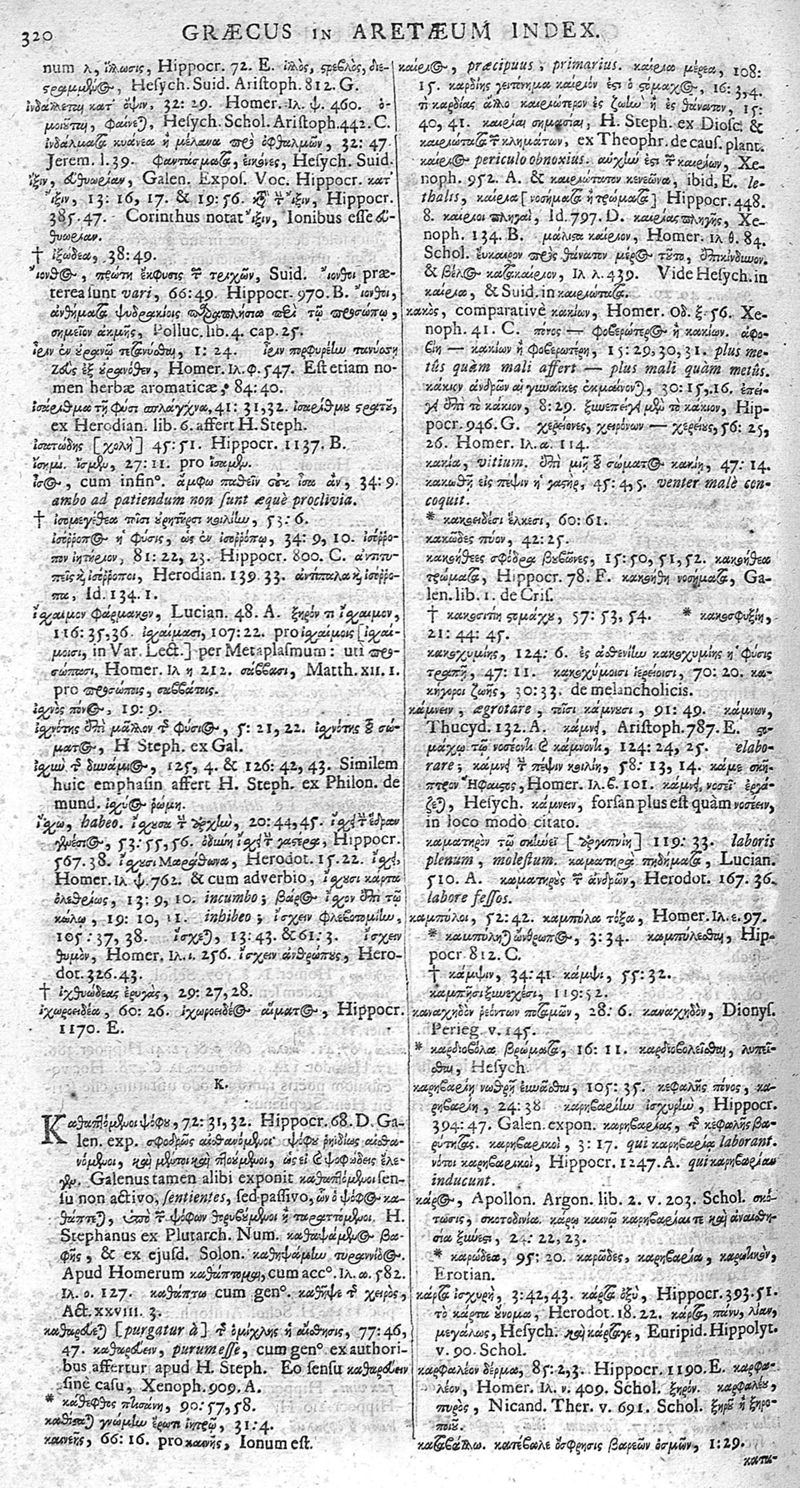 320
GRÆCUS IN ARETÆUM INDEX.
num λ, ἴλωσις, Hippocr. 72. E. ἰλλὸς, στρεβλὸς, διε-
στραμμένος, Hesych. Suid. Aristoph. 812. G.
ἰνδάλλεται κατ' ὄψιν, 32: 29. Homer. Ιλ. ψ. 460. ὁ-
μοιοῦται, φαίνεται, Hesych. Schol. Aristoph. 442. C.
ἰνδάλματα κυάνεα ἢ μέλανα πρὸ ὀφθαλμῶν, 32: 47.
Jerem. l. 39. φαντάσματα, εἰκόνες, Hesych. Suid.
ἴξιν, εὐθυωρίαν, Galen. Expos. Voc. Hippocr. κατ'
ἴξιν, 13: 16, 17. & 19: 56. ἴξιν, Hippocr.
385. 47. Corinthus notat ἴξιν, Ionibus esse εὐ-
θυωρίαν.
† ἰξώδεα, 38: 49.
ἴονθος, πρώτη ἔκφυσις τριχῶν, Suid. ἴονθοι præ-
terea sunt vari, 66: 49. Hippocr. 970. B. ἴονθοι,
ἀνθήματα ψυδρακίοις παραπλήσια περὶ τῷ προσώπῳ,
σημεῖον ἀκμῆς, Polluc. lib. 4. cap. 25.
ἶριν ἐν οὐρανῷ τετανύσθαι, 1: 24. ἶριν πορφυρέην τανύσσῃ
Ζεὺς ἐξ οὐρανόθεν, Homer. Ιλ. φ. 547. Est etiam no-
men herbæ aromaticæ, 84: 40.
ἰσάριθμα τῇ φύσι σπλάγχνα, 41: 31, 32. ἰσαρίθμου στρατοῦ,
ex Herodian. lib. 6. affert H. Steph.
ἰσατώδης [χολὴ] 45: 51. Hippocr. 1137. B.
ἴσημι. ἴσμεν, 27: 11. pro ἴσαμεν.
ἶσος, cum infinᵒ. ἄμφω παθεῖν οὐκ ἶσα ἂν, 34: 9.
ambo ad patiendum non sunt æquè proclivia.
† ἰσομεγέθεα τῇσι οὐρητῆρσι κοιλίην, 53: 6.
ἰσόρροπος ἡ φύσις, ὡς ἐν ἰσορρόπῳ, 34: 9, 10. ἰσόρρο-
πον ἰητήριον, 81: 22, 23. Hippocr. 800. C. ἀντιτυ-
πεῖς καὶ ἰσόρροποι, Herodian. 139 33. ἀντίπαλα καὶ ἰσόρρο-
πα, Id. 134. 1.
ἴσχαιμον φάρμακον, Lucian. 48. A. ξηρόν τι ἴσχαιμον,
116: 35, 36. ἰσχαίμασι, 107: 22. pro ἰσχαίμοις [ἰσχαί-
μοισι, in Var. Lect.] per Metaplasmum: uti προ-
σώπασι, Homer. Ιλ η 212. σάββασι, Matth. XII. 1.
pro προσώποις, σαββάτοις.
ἰσχνὸς πόνος, 19: 9.
ἰσχνότης ἐπὶ μᾶλλον τῆς φύσιος, 5: 21, 22. ἰσχνότης τοῦ σώ-
ματος, H Steph. ex Gal.
ἰσχὺν τῆς δυνάμιος, 125, 4. & 126: 42, 43. Similem
huic emphasin affert H. Steph. ex Philon. de
mund. ἰσχύος ῥώμη.
ἴσχω, habeo. 20: 44, 45.
53: 55, 56. Hippocr.
567. 38. ἴσχουσι Μαραθῶνα, Herodot. 15. 22. ἴσχει,
Homer. Ιλ. ψ. 762. & cum adverbio, ἴσχουσι κάρτα
ὀλεθρίως, 13: 9, 10. incumbo; βάρος ἴσχον ἐπὶ τῷ
κώλῳ, 19: 10, 11. inhibeo; ἴσχειν φλεβοτομίην,
105: 37, 38. ἴσχεται, 13: 43. & 61: 3. ἴσχειν
θυμὸν, Homer. Ιλ. ι. 256. ἴσχειν ἀνθρώπους, Hero-
dot. 326. 43.
† ἰχθυώδεας ἐρυγὰς, 29: 27, 28.
ἰχωροειδέα, 60: 26. ἰχωροειδέος αἵματος, Hippocr.
1170. E.
K.
Καθαπτόμενοι ψόφου, 72: 31, 32. Hippocr. 68. D. Ga-
len. exp. σφοδρῶς αἰσθανόμενοι ψόφου ῥηιδίως αἰσθα-
νόμενοι, καὶ πτοούμενοι, ὡς εἰ ψοφώδεις ἔλε-
γεν. Galenus tamen alibi exponit καθαπτόμενοι sen-
su non activo, sentientes, sed passivo, ὧν ὁ ψόφος κα-
θάπτεται, ὑπὸ τῶν ψόφων θορυβούμενοι ἢ ταραττόμενοι. H.
Stephanus ex Plutarch. Num. καθαψάμενος βα-
φῆς, & ex ejusd. Solon. καθηψάμην τυραννίδος.
Apud Homerum καθάπτομαι, cum accᵒ. Ιλ. α. 582.
Ιλ. ο. 127. καθάπτω cum genᵒ. καθῆψε τῆς χειρὸς,
Act. XXVIII. 3.
καθαρεύει [purgatur à] τῆς ὁμίχλης ἡ αἴσθησις, 77: 46,
47. καθαρεύειν, purum esse, cum genᵒ. ex authori-
bus affertur apud H. Steph. Eo sensu καθαρεύειν
sine casu, Xenoph. 909. A.
* κάθεφθος πτισάνη, 90: 57, 58.
καθίσταται γνώμην ἔρωτι ἰητρῷ, 31: 4.
καινεῆς, 66: 16. pro καινῆς, Ionum est.
καίριος, præcipuus, primarius. καίρια μέρεα, 108:
15. καρδίης γειτόνημα καίριόν ἐστι ὁ στόμαχος, 16: 3, 4.
τί καρδίας ἄλλο καιριώτερον ἐς ζωὴν ἢ ἐς θάνατον, 15:
40, 41. καίριαι σημασίαι, H. Steph. ex Diosc. &
καιριώτατα κλημάτων, ex Theophr. de caus. plant.
καίριος periculo obnoxius. αὐχὴν ἐστὶ τῶν καιρίων, Xe-
noph. 952. A. & καιριώτατον κενεῶνα, ibid. E. le-
thalis, καίρια [νοσήματα ἢ τρώματα] Hippocr. 448.
8. καίριοι πληγαὶ, Id. 797. D. καιρίας πληγῆς, Xe-
noph. 134. B. μάλιστα καίριον, Homer. Ιλ θ. 84.
Schol. εὔκαιρον πρὸς θάνατον μέρος τοῦτο, ἐπικίνδυνον.
& βέλος κατακαίριον, Ιλ λ. 439. Vide Hesych. in
καίρια, & Suid. in καιριώτατα.
κακὸς, comparativè κακίων, Homer. Οδ. ξ. 56. Xe-
noph. 41. C. πόνος — φοβερώτερος ἢ κακίων. ἀφο-
βίη — κακίων ἢ φοβερωτέρη, 15: 29, 30, 31. plus me-
tûs quàm mali affert — plus mali quàm metûs.
κάκιον ἀνδρῶν αἱ γυναῖκες ἐκμαίνονται, 30: 15, 16. ἐπεί-
γει ἐπὶ τὸ κάκιον, 8: 29. ξυνεπείγει μὲν τὸ κάκιον, Hip-
pocr. 946. G. χερείονες, χειρόνων — χερείους, 56: 25,
26. Homer. Ιλ. α. 114.
κακία, vitium. ἐπὶ μιῇ τοῦ σώματος κακίῃ, 47: 14.
κακωθῇ εἰς πέψιν ἡ γαστὴρ, 45: 4, 5. venter malè con-
coquit.
* κακοειδέσι ἕλκεσι, 60: 61.
κακῶδες πῦον, 42: 25.
κακοήθεες σφόδρα βουβῶνες, 15: 50, 51, 52. κακοήθεα
τρώματα, Hippocr. 78. F. κακοήθη νοσήματα, Ga-
len. lib. 1. de Cris.
† κακοσιτίη στομάχου, 57: 53, 54. * κακοσφυξίη,
21: 44: 45.
κακοχυμίης, 124: 6. ἐς ἀσθενίην κακοχυμίης ἡ φύσις
τραπῇ, 47: 11. κακοχύμοισι ἱερείοισι, 70: 20. κα-
κήγοροι ζωῆς, 30: 33. de melancholicis.
κάμνειν, ægrotare, τοῖσι κάμνουσι, 91: 49. κάμνων,
Thucyd. 132. A. κάμνει, Aristoph. 787. E. στο-
μάχῳ τῷ νοσέοντι καὶ κάμνοντι, 124: 24, 25. elabo-
rare; κάμνει τὴν πέψιν κοιλίη, 58: 13, 14. κάμε σκῆ-
πτρον Ἥφαιστος, Homer. Ιλ. β. 101. κάμνει, νοσεῖ ἐργά-
ζεται, Hesych. κάμνειν, forsan plus est quàm νοσέειν,
in loco modò citato.
καματηρὸν τῷ σκήνει [ἀγρυπνίη] 119: 33. laboris
plenum, molestum. καματηρὰ πηδήματα, Lucian.
510. A. καματηροὺς τῶν ἀνδρῶν, Herodot. 167. 36.
labore fessos.
καμπύλοι, 52: 42. καμπύλα τόξα, Homer. Ιλ. ε. 97.
* καμπύλη ὤνθρωπος, 3: 34. καμπύλεσθαι, Hip-
pocr. 812. C.
† κάμψιν, 34: 41. κάμψι, 55: 32.
καμπῇσι ξυνεχέσι, 119: 52.
καναχηδὸν ῥεόντων ποταμῶν, 28: 6. καναχηδὸν, Dionys.
Perieg. v. 145.
* καρδιοβόλα βρώματα, 16: 11. καρδιοβολεῖσθαι, λυπεῖ-
σθαι, Hesych.
καρηβαρίη νωθρῇ ξυνιᾶσθαι, 105: 35. κεφαλῆς πόνος, κα-
ρηβαρίη, 24: 38 καρηβαρίην ἰσχυρὴν, Hippocr.
394: 47. Galen. expon. καρηβαρίας, τῆς κεφαλῆς βα-
ρύτητας. καρηβαρικοὶ, 3: 17. qui καρηβαρίᾳ laborant.
νότοι καρηβαρικοὶ, Hippocr. 1247. A. qui καρηβαρίαν
inducunt.
κάρος, Apollon. Argon. lib. 2. v. 203. Schol. σκό-
τωσις, σκοτοδινία. κάρῳ κοινῷ καρηβαρίαι τε καὶ ἀναισθη-
σία ξύνεστι, 2: 22, 23.
* καρώδεα, 95: 20. καρῶδες, καρηβαρία, καρωτικὸν,
Erotian.
κάρτα ἰσχυρὴ, 3: 42, 43. κάρτα ὀξὺ, Hippocr. 393. 51.
τὸ κάρτα οὔνομα, Herodot. 18. 22. κάρτα, πάνυ, λίαν,
μεγάλως, Hesych. καὶ κάρτα γε, Euripid. Hippolyt.
v. 90. Schol.
καρφαλέον δέρμα, 85: 2, 3. Hippocr. 1190. E. καρφα-
λέον, Homer. Ιλ. ν. 409. Schol. ξηρόν. καρφαλέου,
πυρὸς, Nicand. Ther. v. 691. Schol. ξηροῦ ἢ ξηρο-
ποιοῦ.
καταβάλλω. κατέβαλε ὄσφρησις βαρεῶν ὀσμῶν, 1: 29.
κατα-